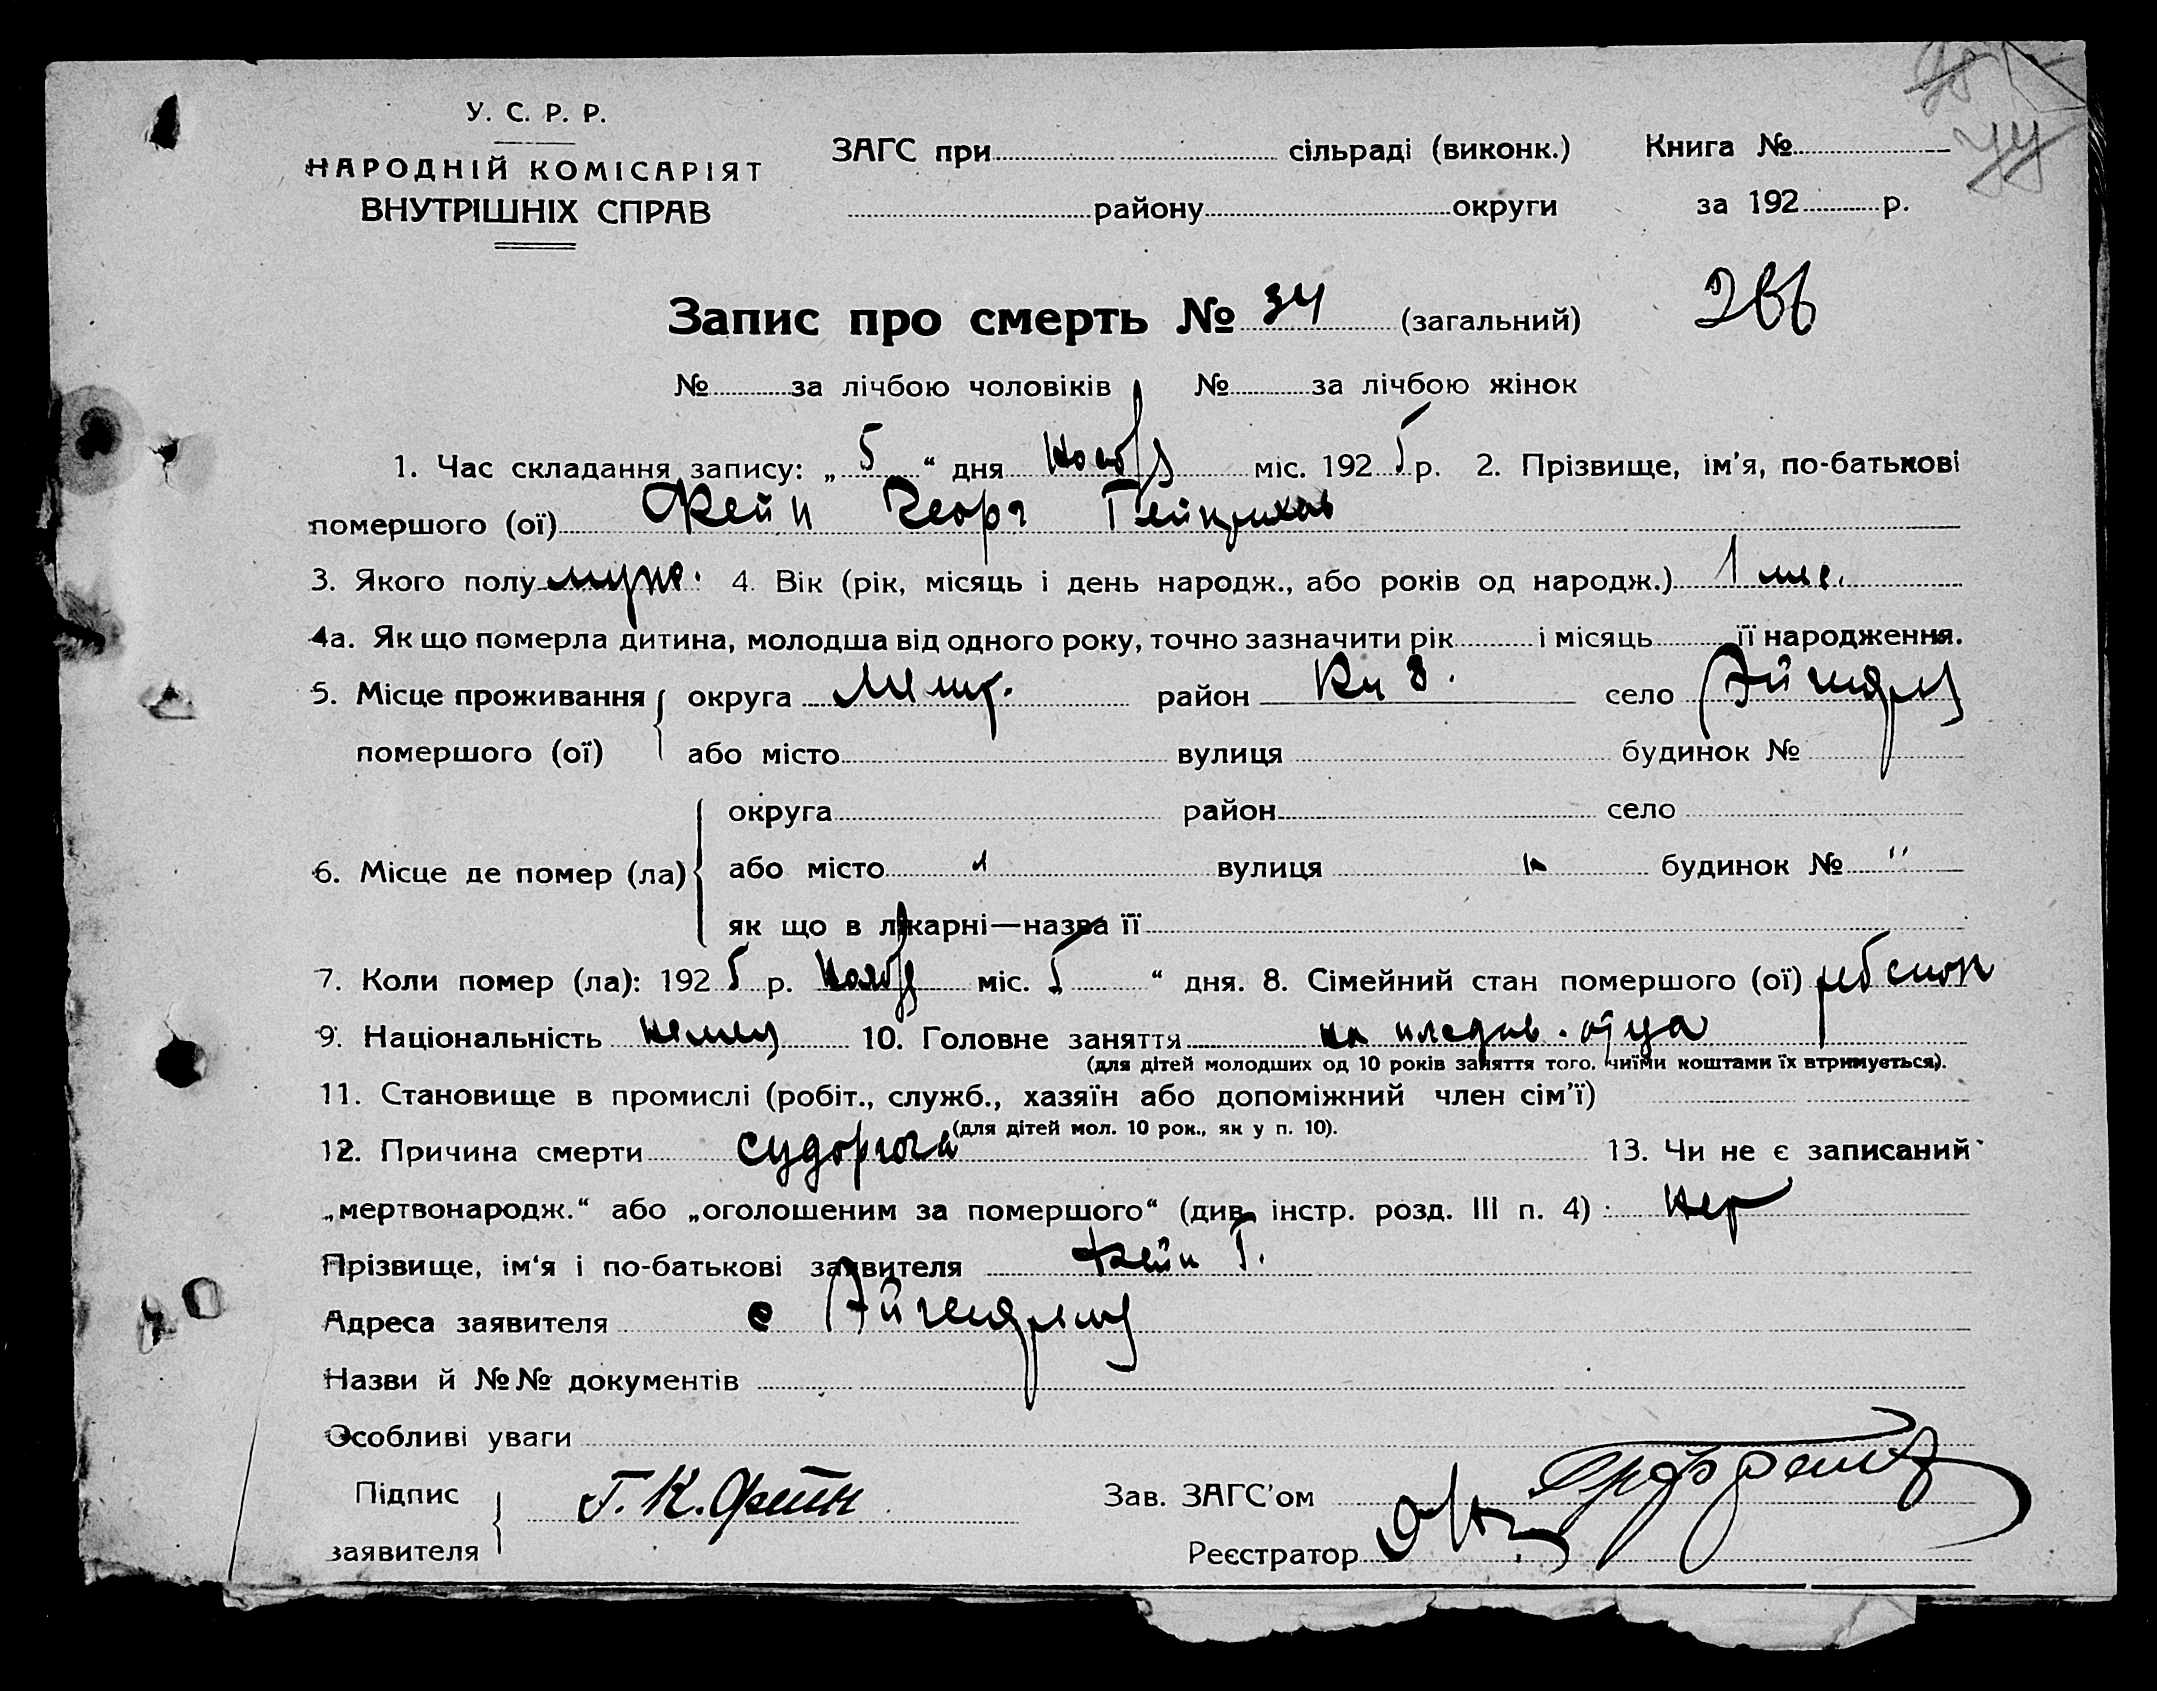 У. С. Р. Р.
НАРОДНІЙ КОМІСАРІЯТ
ВНУТРІШНІХ СПРАВ
ЗАГС при сільраді (виконк.) Книга №
району округи за 192 р.
Запис про смерть № 34 (загальний) 266
№ за лічбою чоловіків № за лічбою жінок
1. Час складання запису: „ 5 “ дня нояб міс. 192 5 р. 2. Прізвище, ім'я, по-батькові
помершого (ої) Фейн Георг Гейнрихов
3. Якого полу муж. 4. Вік (рік, місяць і день народж., або років од народж.) 1 мес.
4а. Як що померла дитина, молодша від одного року, точно зазначити рік і місяць її народження.
5. Місце проживання округа Мелит. район село Айгенфельд
помершого (ої) або місто вулиця будинок №
округа район село
6. Місце де помер (ла) або місто вулиця будинок № "
як що в лікарні—назва її
7. Коли помер (ла): 192 5 р. нояб міс. 5 “ дня. 8. Сімейний стан помершого (ої)
9. Національність немец 10. Головне заняття на иждив. отца
(для дітей молодших од 10 років заняття того, чиїми коштами їх втримується).
11. Становище в промислі (робіт., служб., хазяїн або допоміжний член сім'ї)
(для дітей мол. 10 рок., як у п. 10).
12. Причина смерти судорога 13. Чи не є записаний
„мертвонародж.“ або „оголошеним за помершого“ (див. інстр. розд. III п. 4) : нет
Прізвище, ім'я і по-батькові заявителя Фейн Г.
Адреса заявителя с Айгенфельд
Назви й №№ документів
Особливі уваги
Підпис Г. К. Фейн Зав. ЗАГС'ом
заявителя Реєстратор